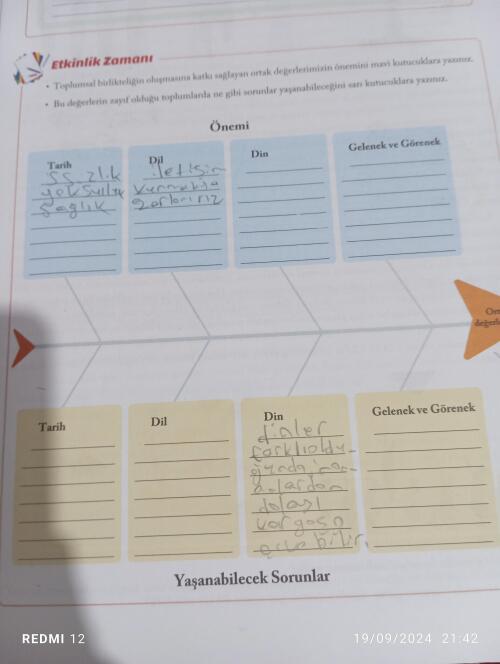 Etkinlik Zamanı
• Toplumsal birlikteliğin oluşmasına katkı sağlayan ortak değerlerimizin önemini mavi kutucuklara yazınız.
• Bu değerlerin zayıf olduğu toplumlarda ne gibi sorunlar yaşanabileceğini sarı kutucuklara yazınız.
Önemi
Tarih
yoksulluk
Sağlık
Dil
iletişim
kurmakta
zorlanırız
Din
Gelenek ve Görenek
Tarih
Dil
Din
dinler
farklıoldu-
ğunda inan-
dolayı
Gelenek ve Görenek
Yaşanabilecek Sorunlar
REDMI 12
19/09/2024 21:42